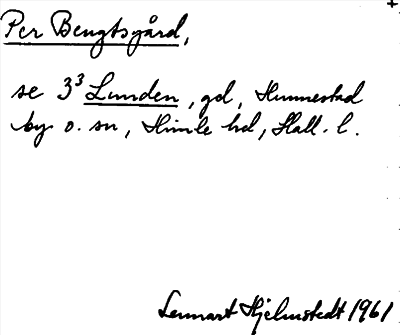 Per Bengtsgård,
se 3³ Lunden, gd, Hunnestad
by o. sn, Himle hd, Hall. l.
Lennart Hjelmstedt 1961